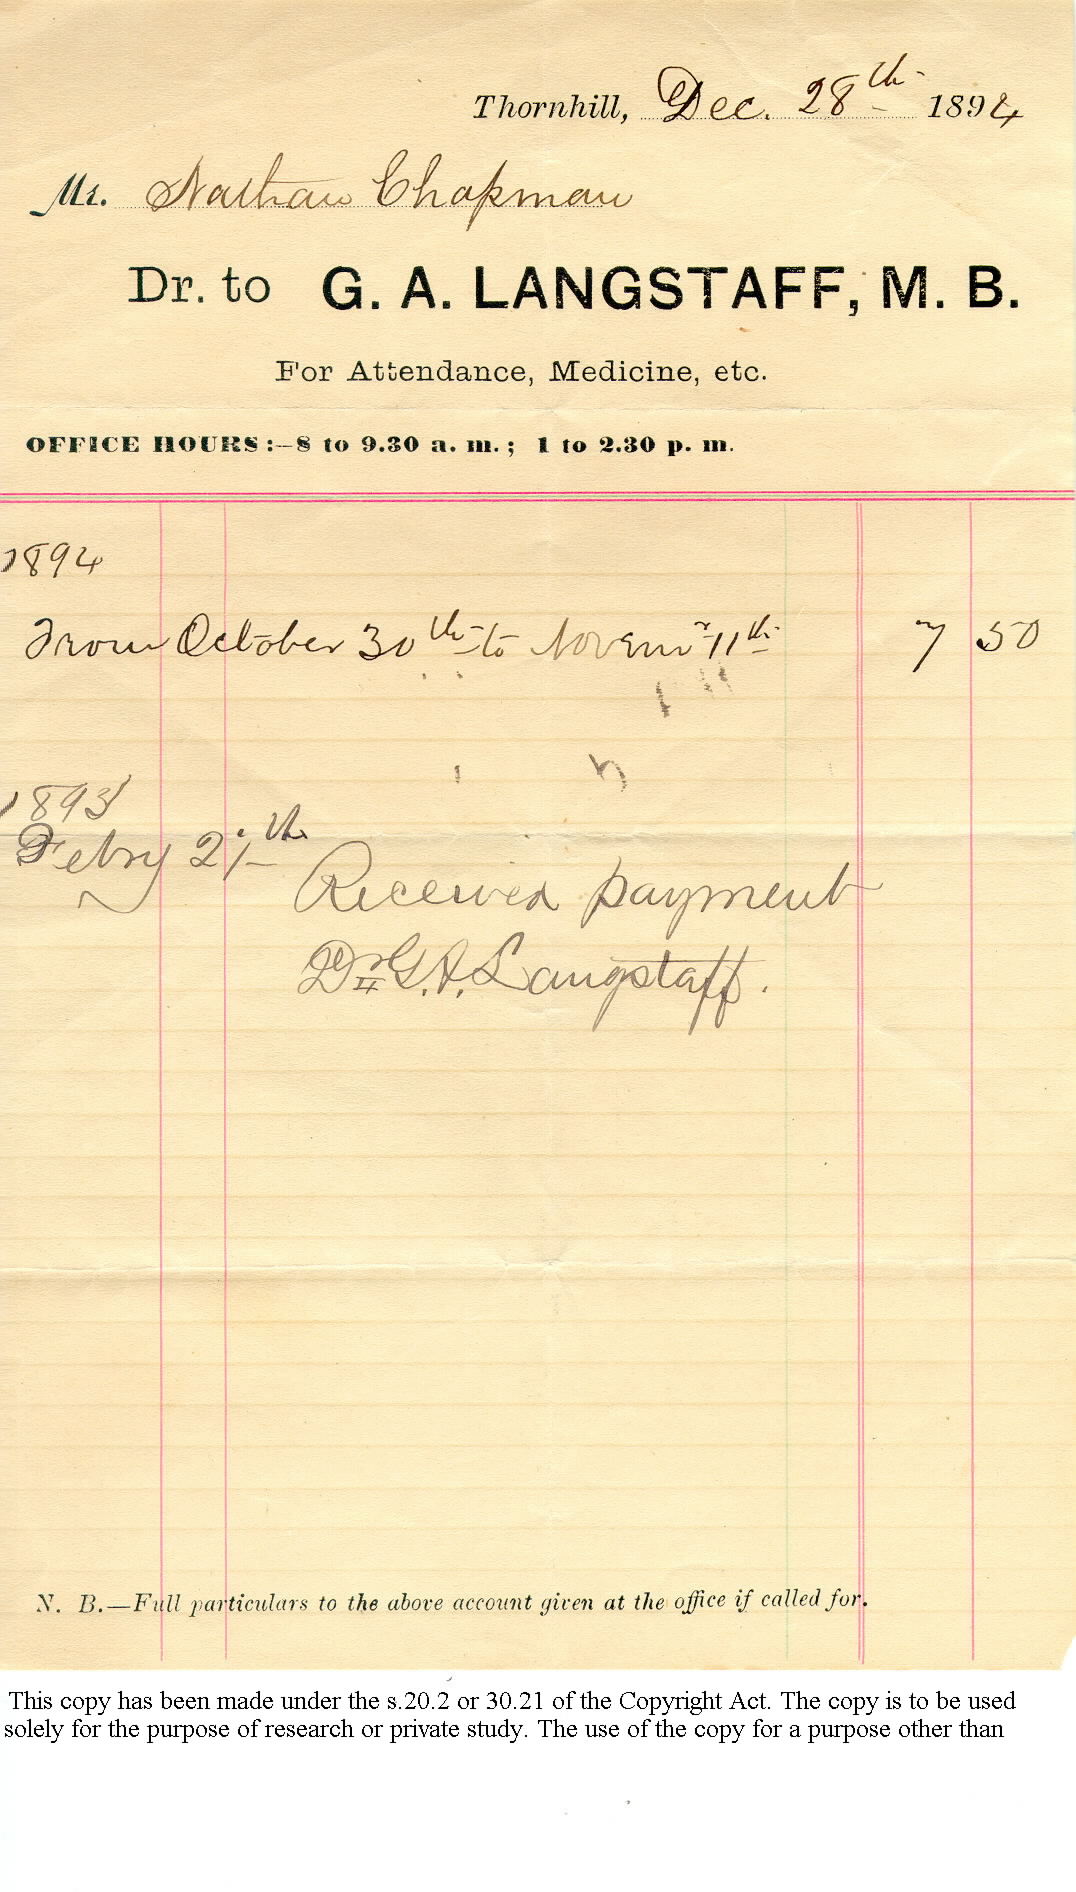 Thornhill, Dec. 28th 1894
Mr. Nathan Chapman
Dr. to G. A. LANGSTAFF, M. B.
For Attendance, Medicine, etc.
OFFICE HOURS:—8 to 9.30 a. m.; 1 to 2.30 p. m.
1894
From October 30th to Novemr 11th 7 50
Febry
Received payment
Dr G. A. Langstaff.
N. B.—Full particulars to the above account given at the office if called for.
This copy has been made under the s.20.2 or 30.21 of the Copyright Act. The copy is to be used
solely for the purpose of research or private study. The use of the copy for a purpose other than